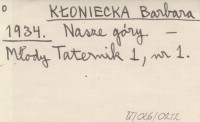 o KŁONIECKA Barbara
1934. Nasze góry. —
Młody Taternik 1, nr 1.